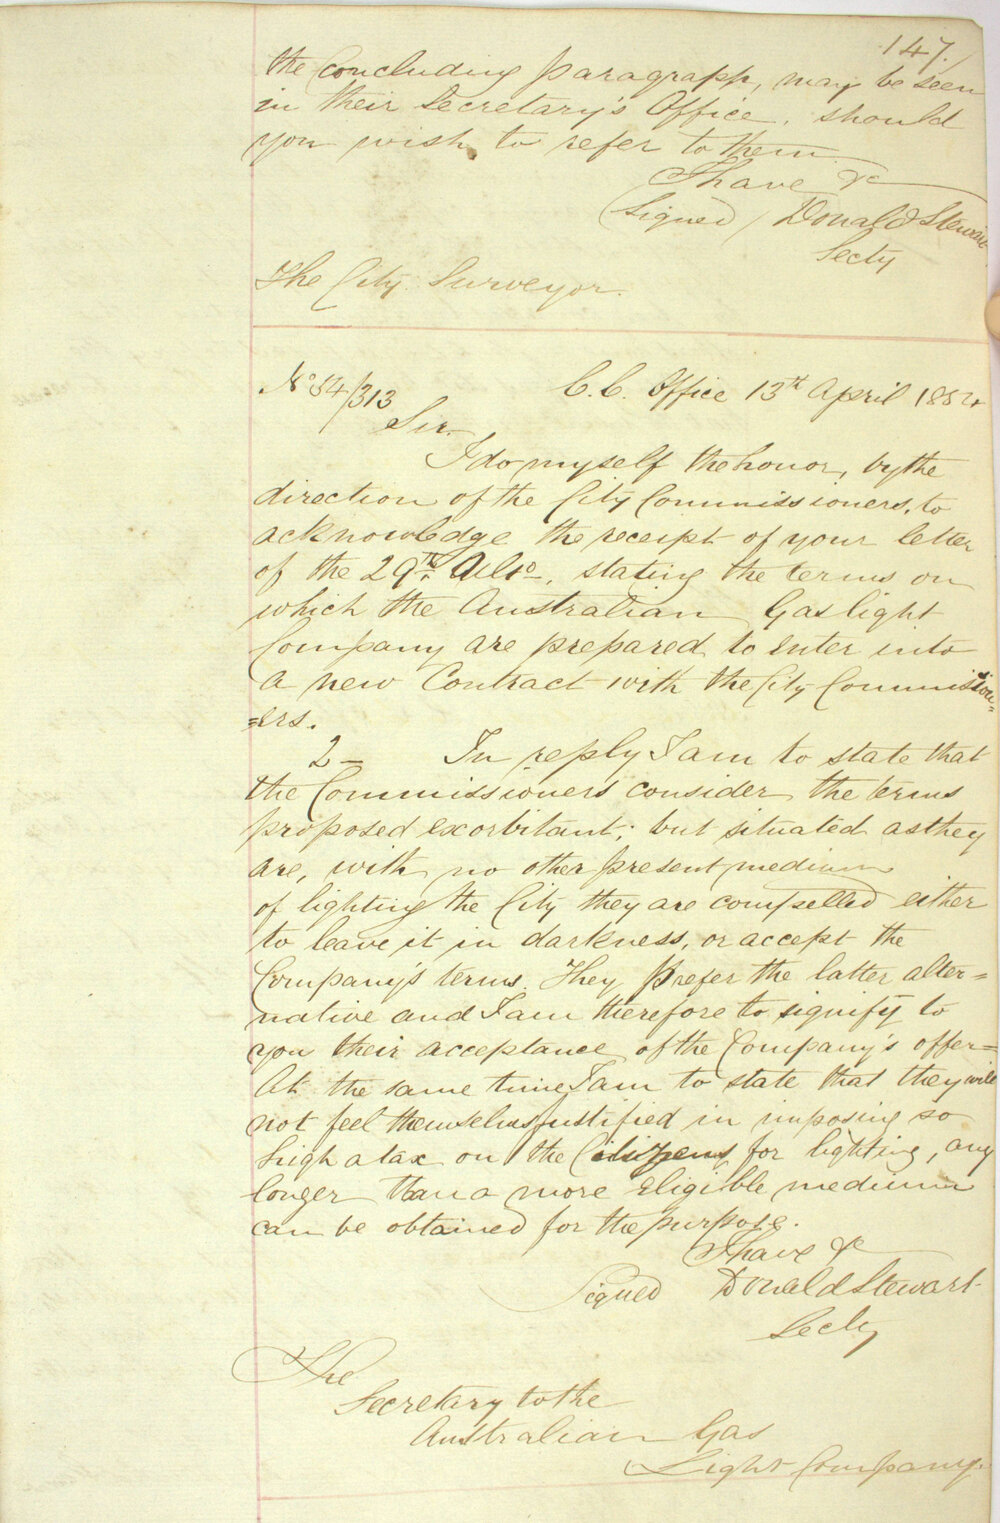 147.
the concluding paragraph, may be seen
in their Secretary's Office, should
you wish to refer to them
I have &c
(Signed) Donald Stewart
Secty
The City Surveyor.
No 54/313
C.C. Office 13th April 1854
Sir.
I do myself the honor, by the
direction of the City Commissioners, to
acknowledge the receipt of your letter
of the 29th Ulto, stating the terms on
which the Australian Gas light
Company are prepared to enter into
a new Contract with the City Commission=
=ers.
2 – In reply I am to state that
the Commissioners consider the terms
proposed exorbitant; but situated as they
are, with no other present medium
of lighting the City they are compelled either
to leave it in darkness, or accept the
Company's terms. They prefer the latter alter=
native and I am therefore to signify to
you their acceptance of the Company's offer=
At the same time I am to state that they will
not feel themselves justified in imposing so
high a tax on the Citizens for lighting, any
longer than a more eligible medium
can be obtained for the purpose.
I have &c
Signed Donald Stewart
Secty
The
Secretary to the
Australian Gas
Light Company.